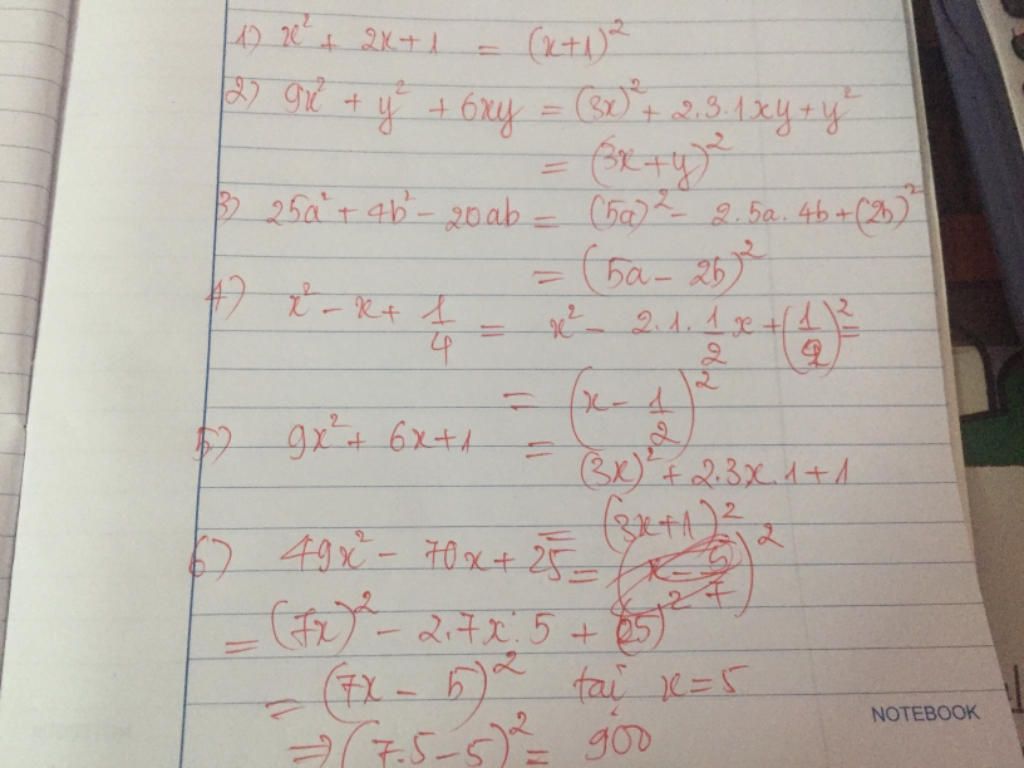 1) x² + 2x+1 = (x+1)²
2) 9x² + y² + 6xy = (3x)² + 2.3.1xy+y²
= (3x+y)²
3) 25a² + 4b² - 20ab = (5a)² - 2.5a.4b+(2b)²
= (5a - 2b)²
4) x² - x + 1/4 = x² - 2.1.1/2x+(1/2)² =
= (x - 1/2)²
5) 9x² + 6x+1 =
(3x)² + 2.3x.1+1
= (3x+1)²
6) 49x² - 70x + 25 =
= (7x)² - 2.7x.5 + (5)²
= (7x - 5)² tại x=5
⇒ (7.5-5)² = 900
NOTEBOOK